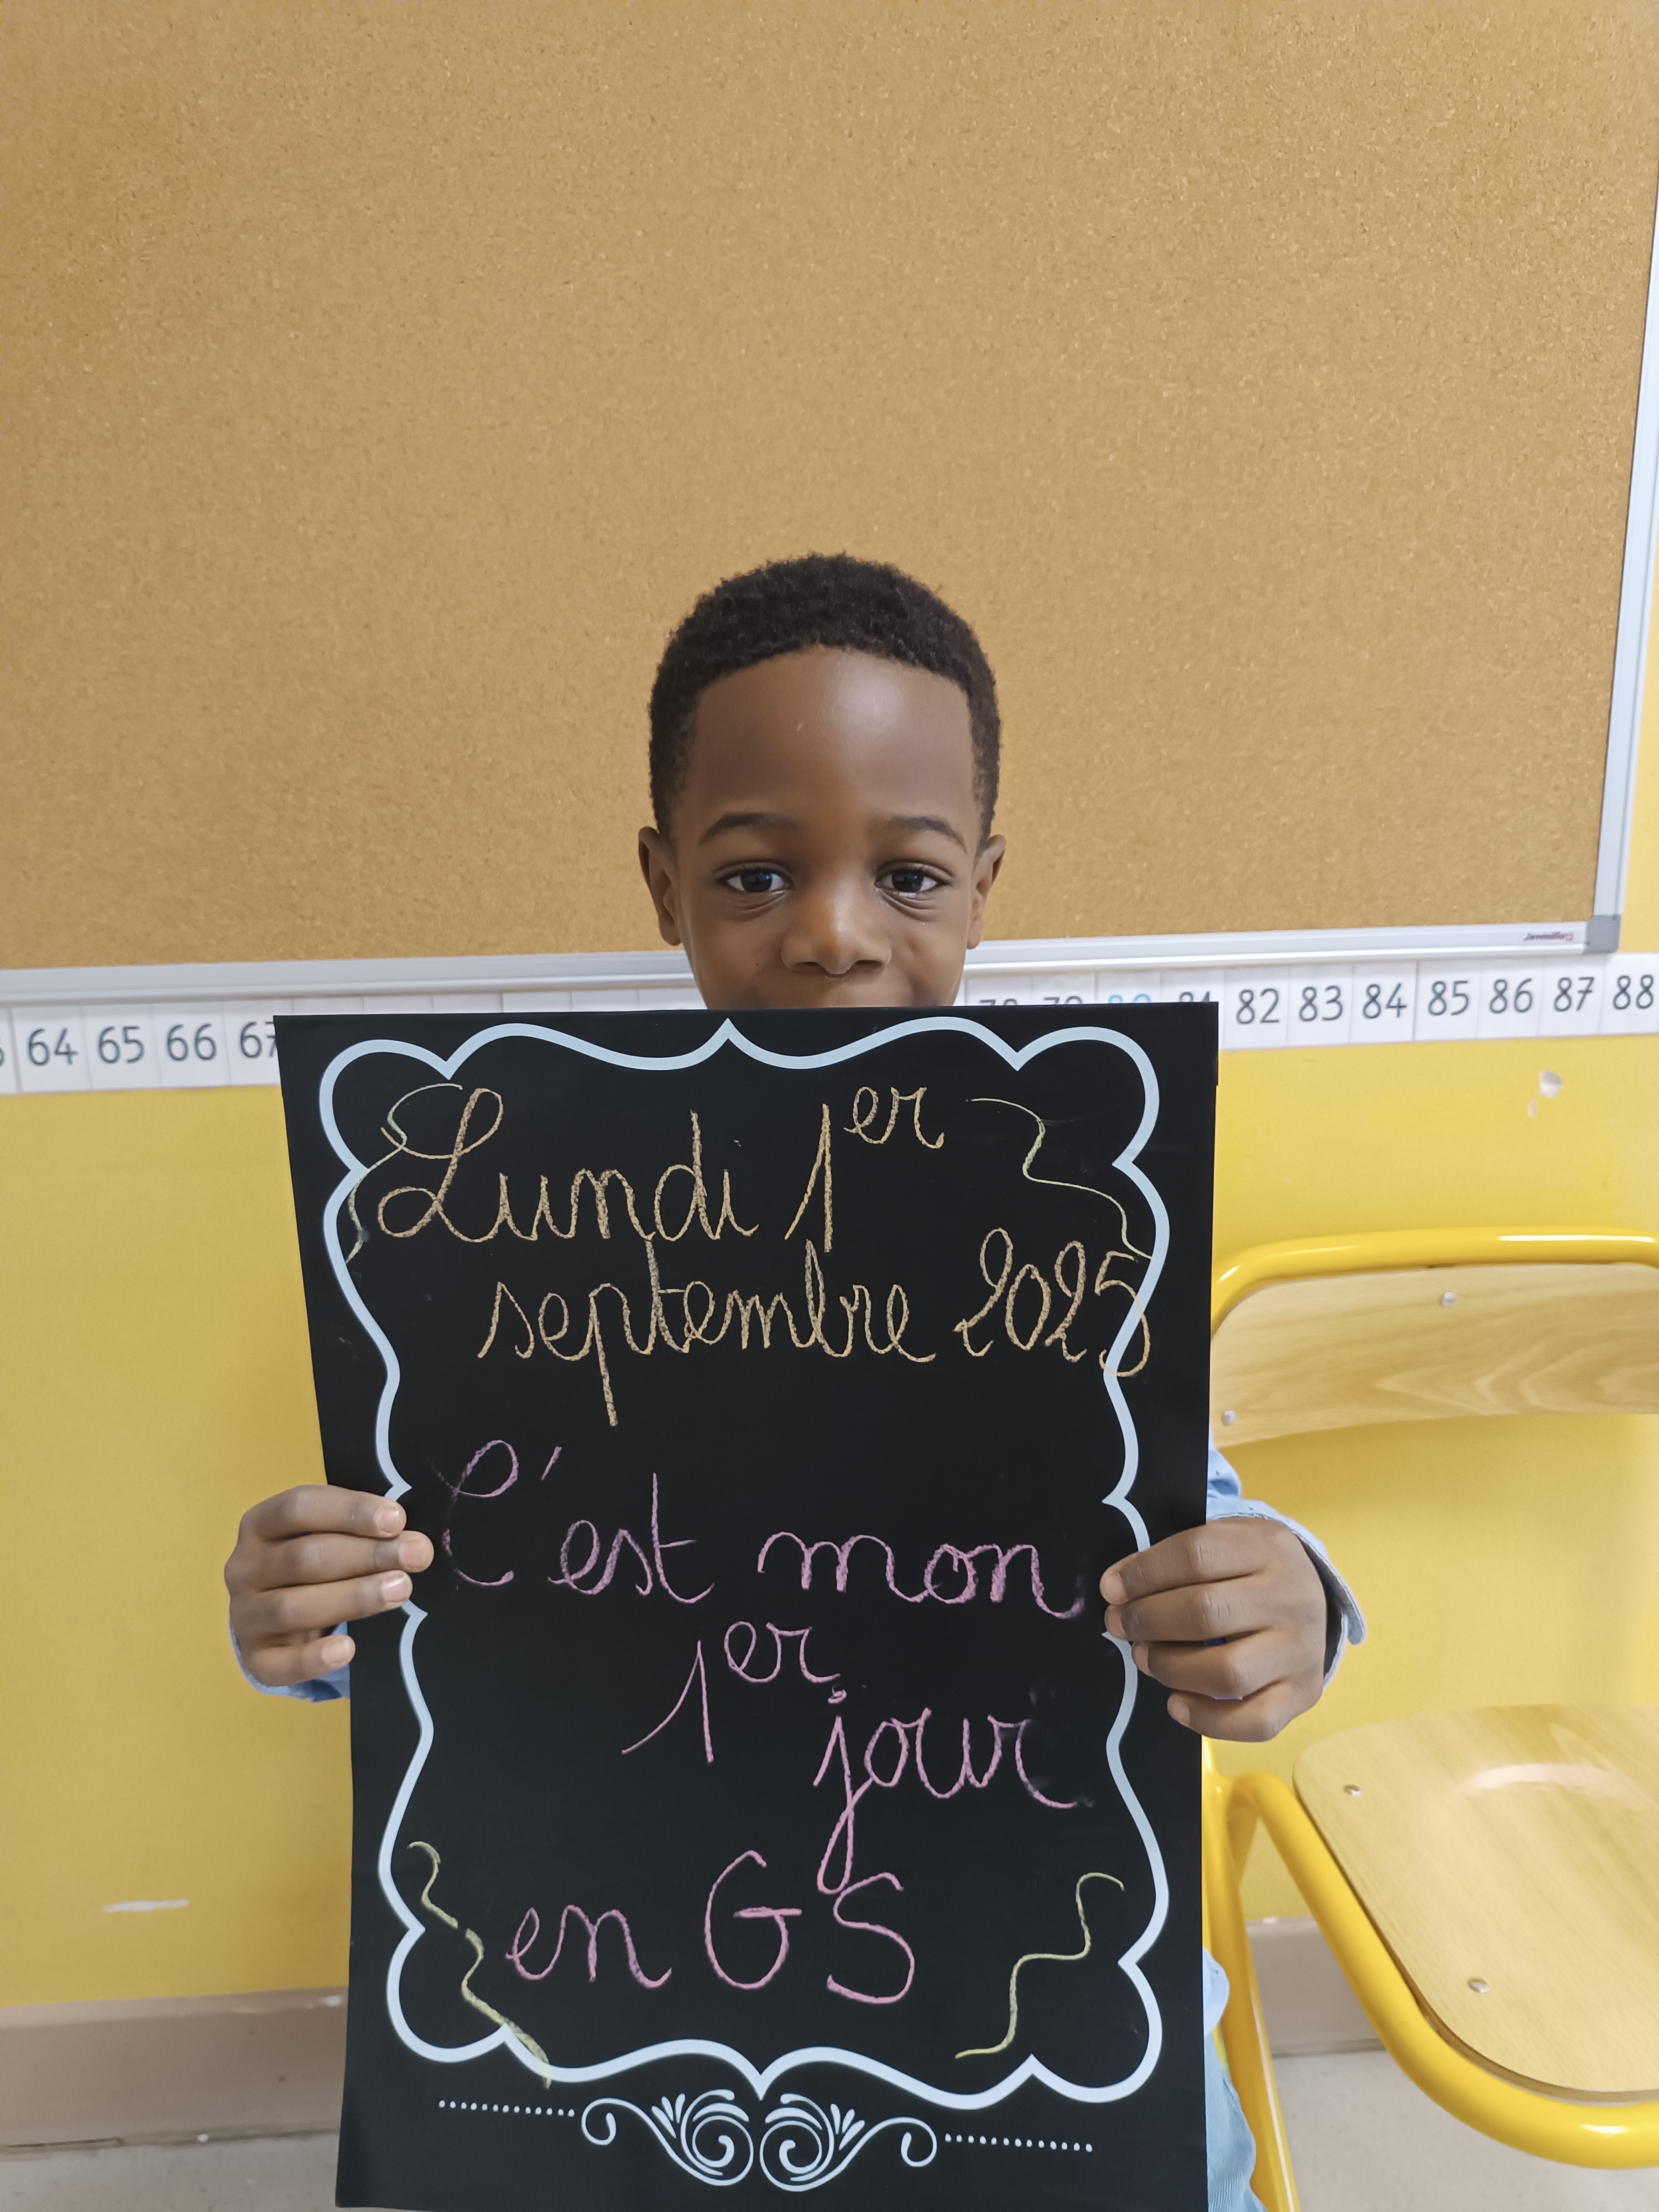 64 65 66 67 78 79 80 81 82 83 84 85 86 87 88
Lundi 1er
septembre 2025
C'est mon
1er
jour
en GS